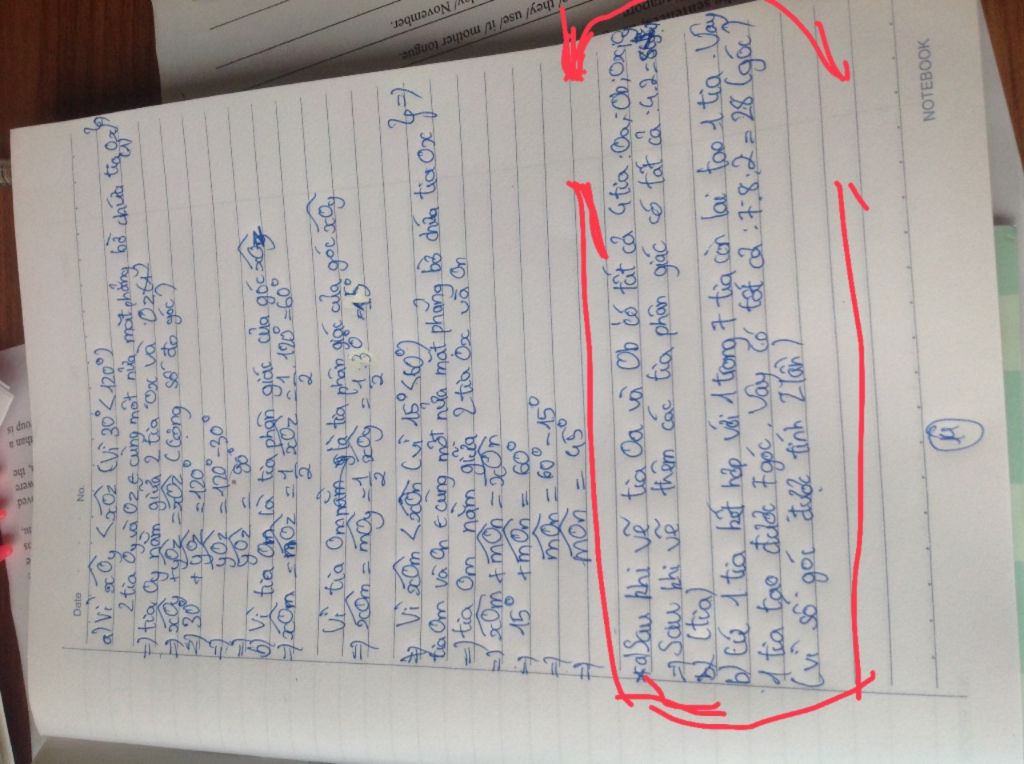 Date No.
a) Vì xOy < xOz (Vì 30° < 120°)
2 tia Oy và Oz ∈ cùng một nửa mặt phẳng bờ chứa tia Ox
=) tia Oy nằm giữa 2 tia Ox và Oz (1)
=) xOy + yOz = xOz (cộng số đo góc)
=) 30° + yOz = 120°
=) yOz = 120° - 30°
=) yOz = 90°
b) Vì tia On là tia phân giác của góc xOz
=) xOn = nOz = 1/2 xOz = 1/2 120° = 60°
Vì tia Om là tia phân giác của góc xOy
=) xOm = mOy = 1/2 xOy = 1/2 30° = 15°
Vì xOm < xOn (vì 15° < 60°)
tia Om và On ∈ cùng một nửa mặt phẳng bờ chứa tia Ox =)
=) tia Om nằm giữa 2 tia Ox và On
=) xOm + mOn = xOn
=) 15° + mOn = 60°
=) mOn = 60° - 15°
=) mOn = 45°
*a) Sau khi vẽ tia Oa và Ob có tất cả 4 tia: Oa; Ob; Ox;
=) Sau khi vẽ thêm các tia phân giác có tất cả: 4.2 =
(tia)
b) Cứ 1 tia bất kỳ với 1 trong 7 tia còn lại tạo 1 tia. Vậy
1 tia tạo được 7 góc. Vậy có tất cả: 7.8:2 = 28 (góc)
(vì số góc được tính 2 lần)
NOTEBOOK
they/ use/ it/ mother tongue.
November.